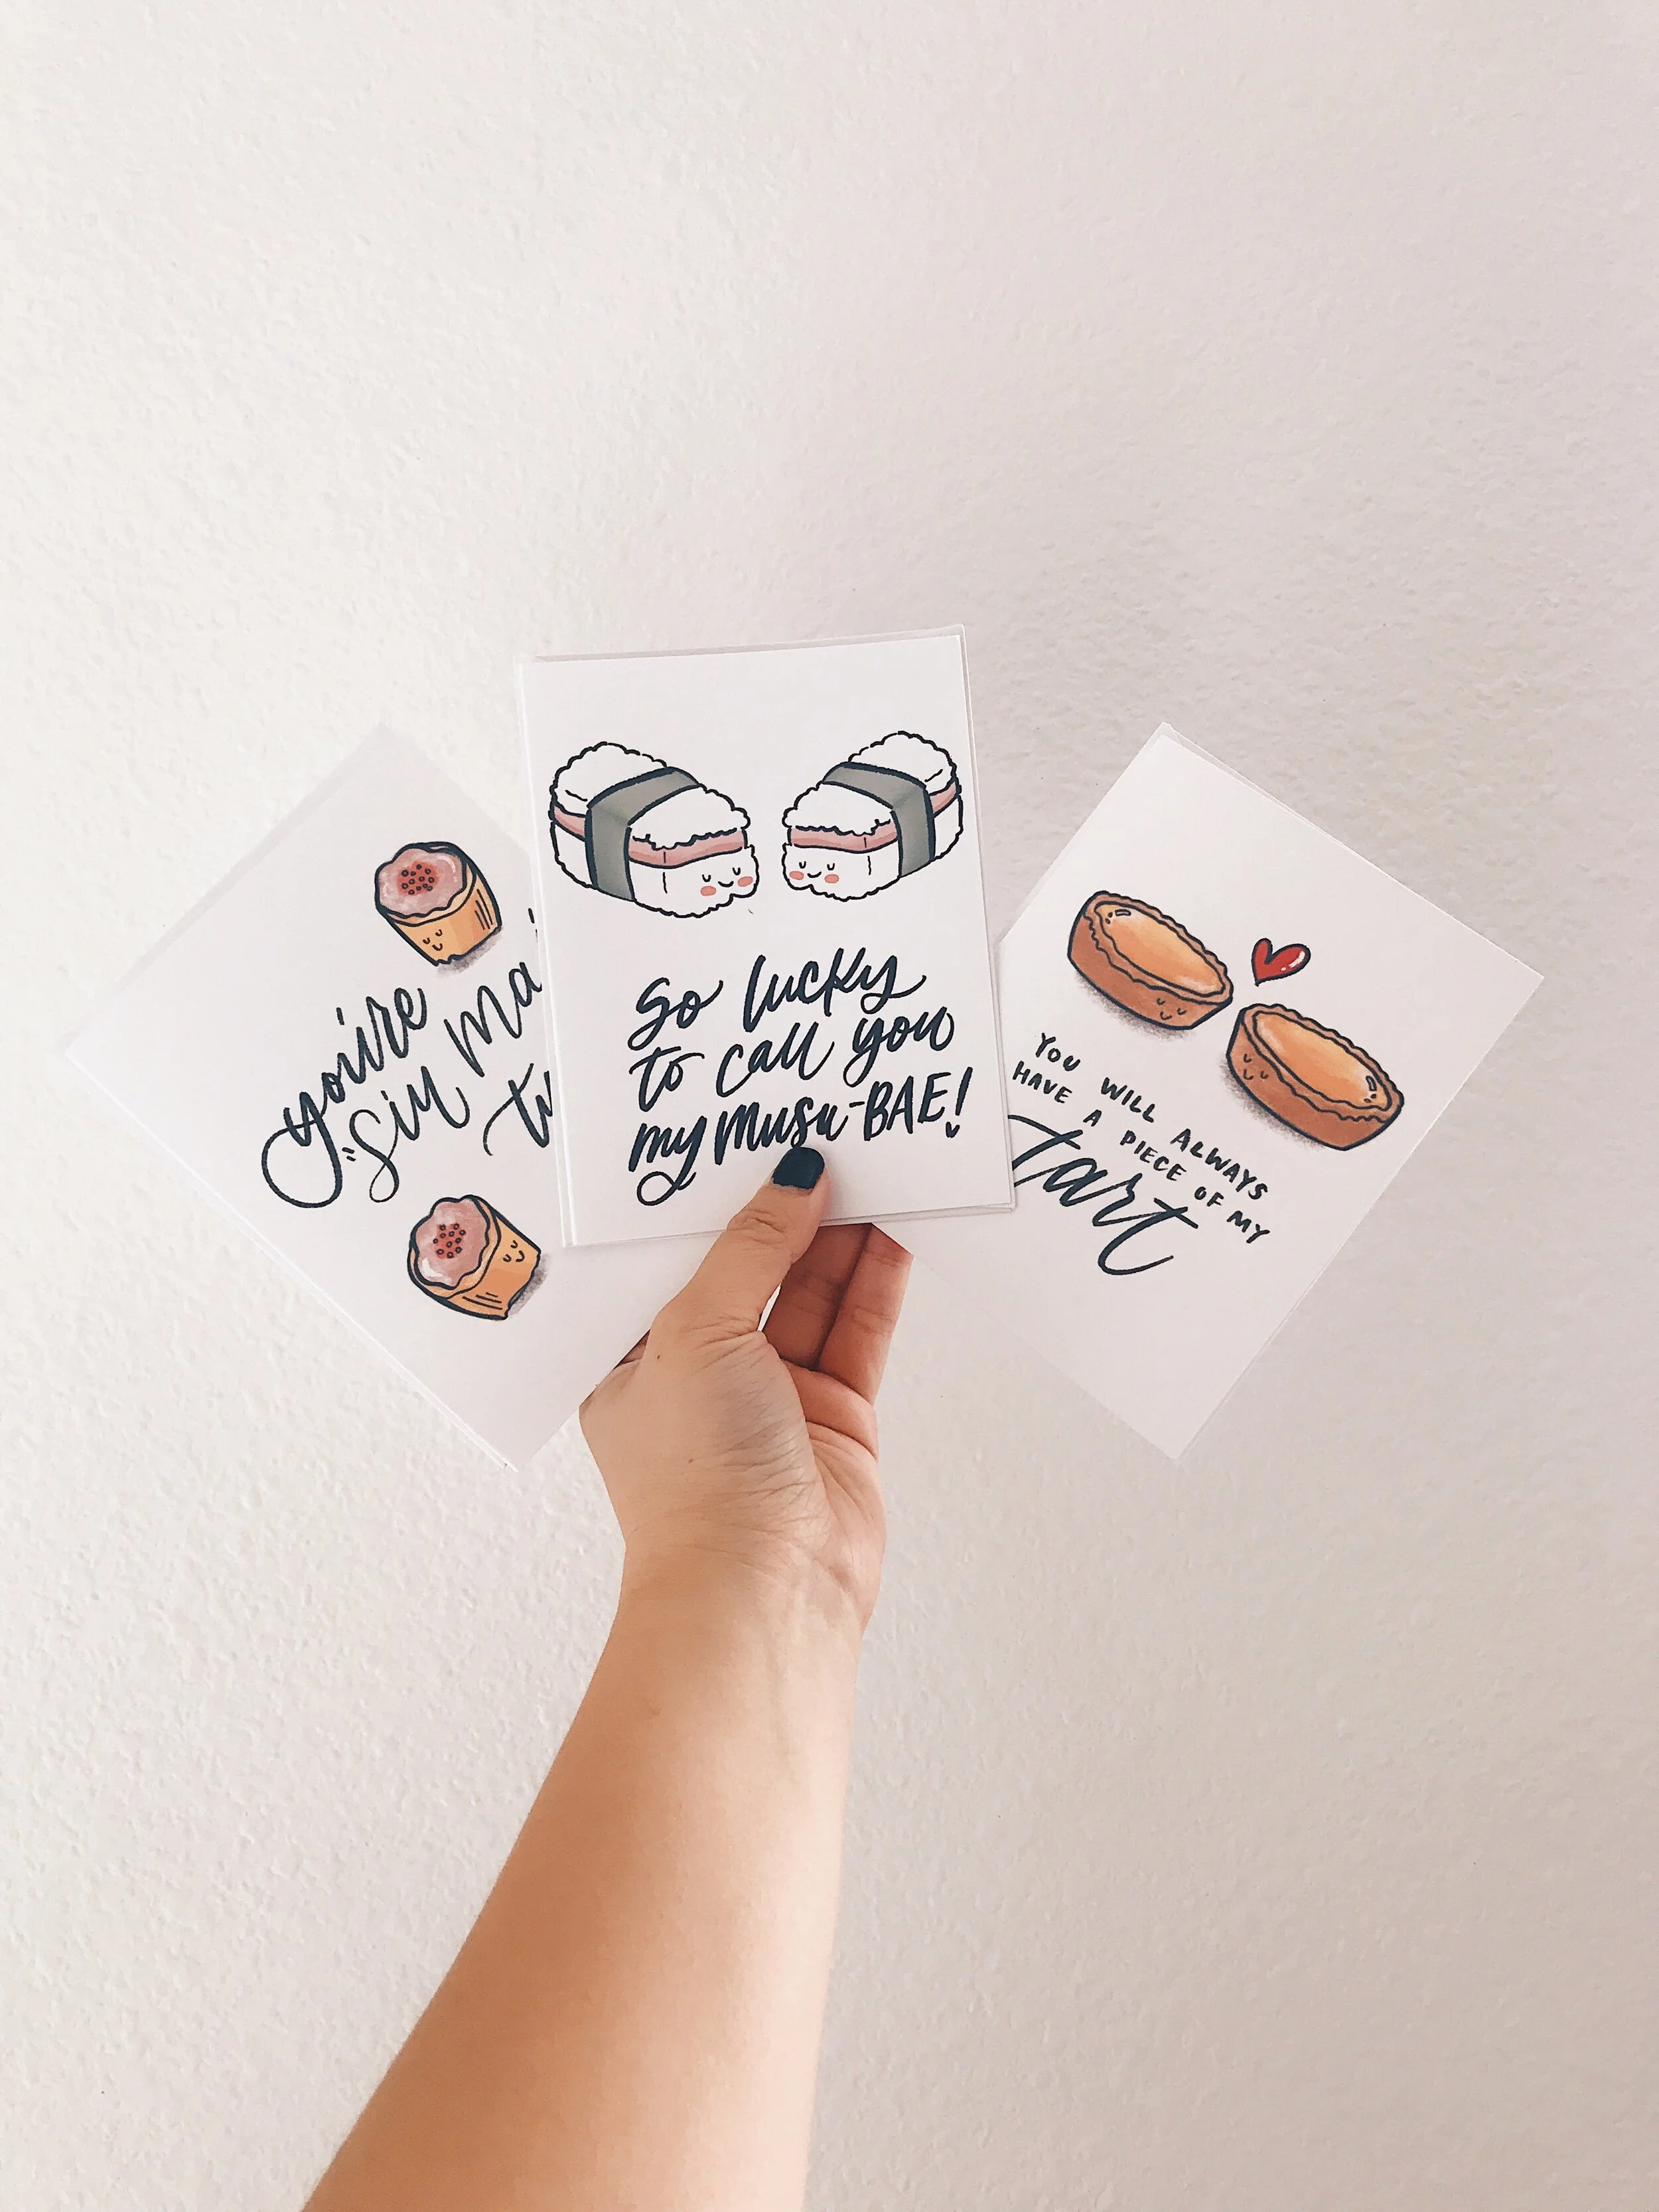 you're
"siu ma
So lucky
to call you
my musu-BAE!
YOU WILL ALWAYS
HAVE A PIECE OF MY
tart